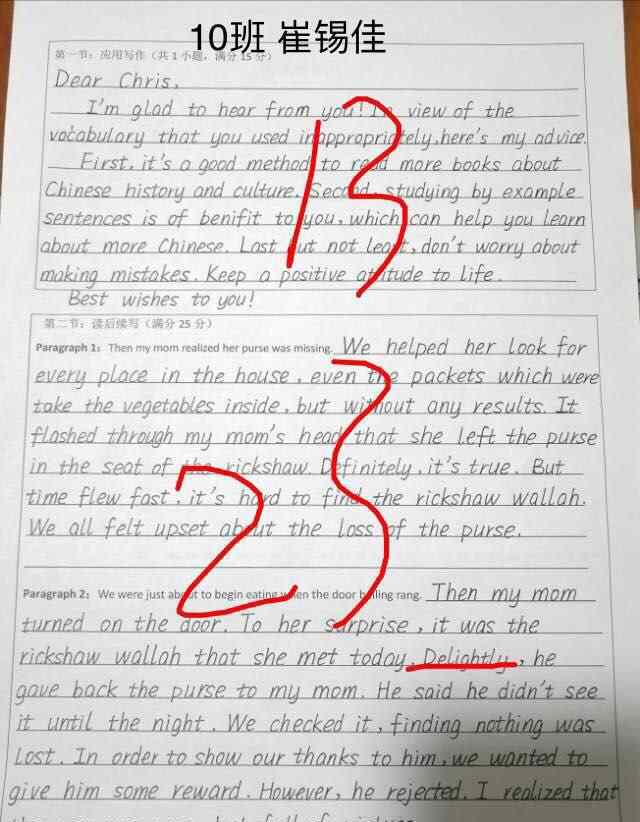 10班 崔锡佳
第一节：应用写作（共1小题，满分15分）
Dear Chris,
I'm glad to hear from you! In view of the
vocabulary that you used inappropriately, here's my advice.
First, it's a good method to read more books about
Chinese history and culture. Second, studying by example
sentences is of benifit to you, which can help you learn
about more Chinese. Last but not least, don't worry about
making mistakes. Keep a positive attitude to life.
Best wishes to you!
13
第二节：读后续写（满分25分）
Paragraph 1: Then my mom realized her purse was missing. We helped her look for
every place in the house, even the packets which were
take the vegetables inside, but without any results. It
flashed through my mom's head that she left the purse
in the seat of the rickshaw. Definitely, it's true. But
time flew fast, it's hard to find the rickshaw wallah.
We all felt upset about the loss of the purse.
23
Paragraph 2: We were just about to begin eating when the door belling rang. Then my mom
turned on the door. To her surprise, it was the
rickshaw wallah that she met today. Delightly, he
gave back the purse to my mom. He said he didn't see
it until the night. We checked it, finding nothing was
lost. In order to show our thanks to him, we wanted to
give him some reward. However, he rejected. I realized that